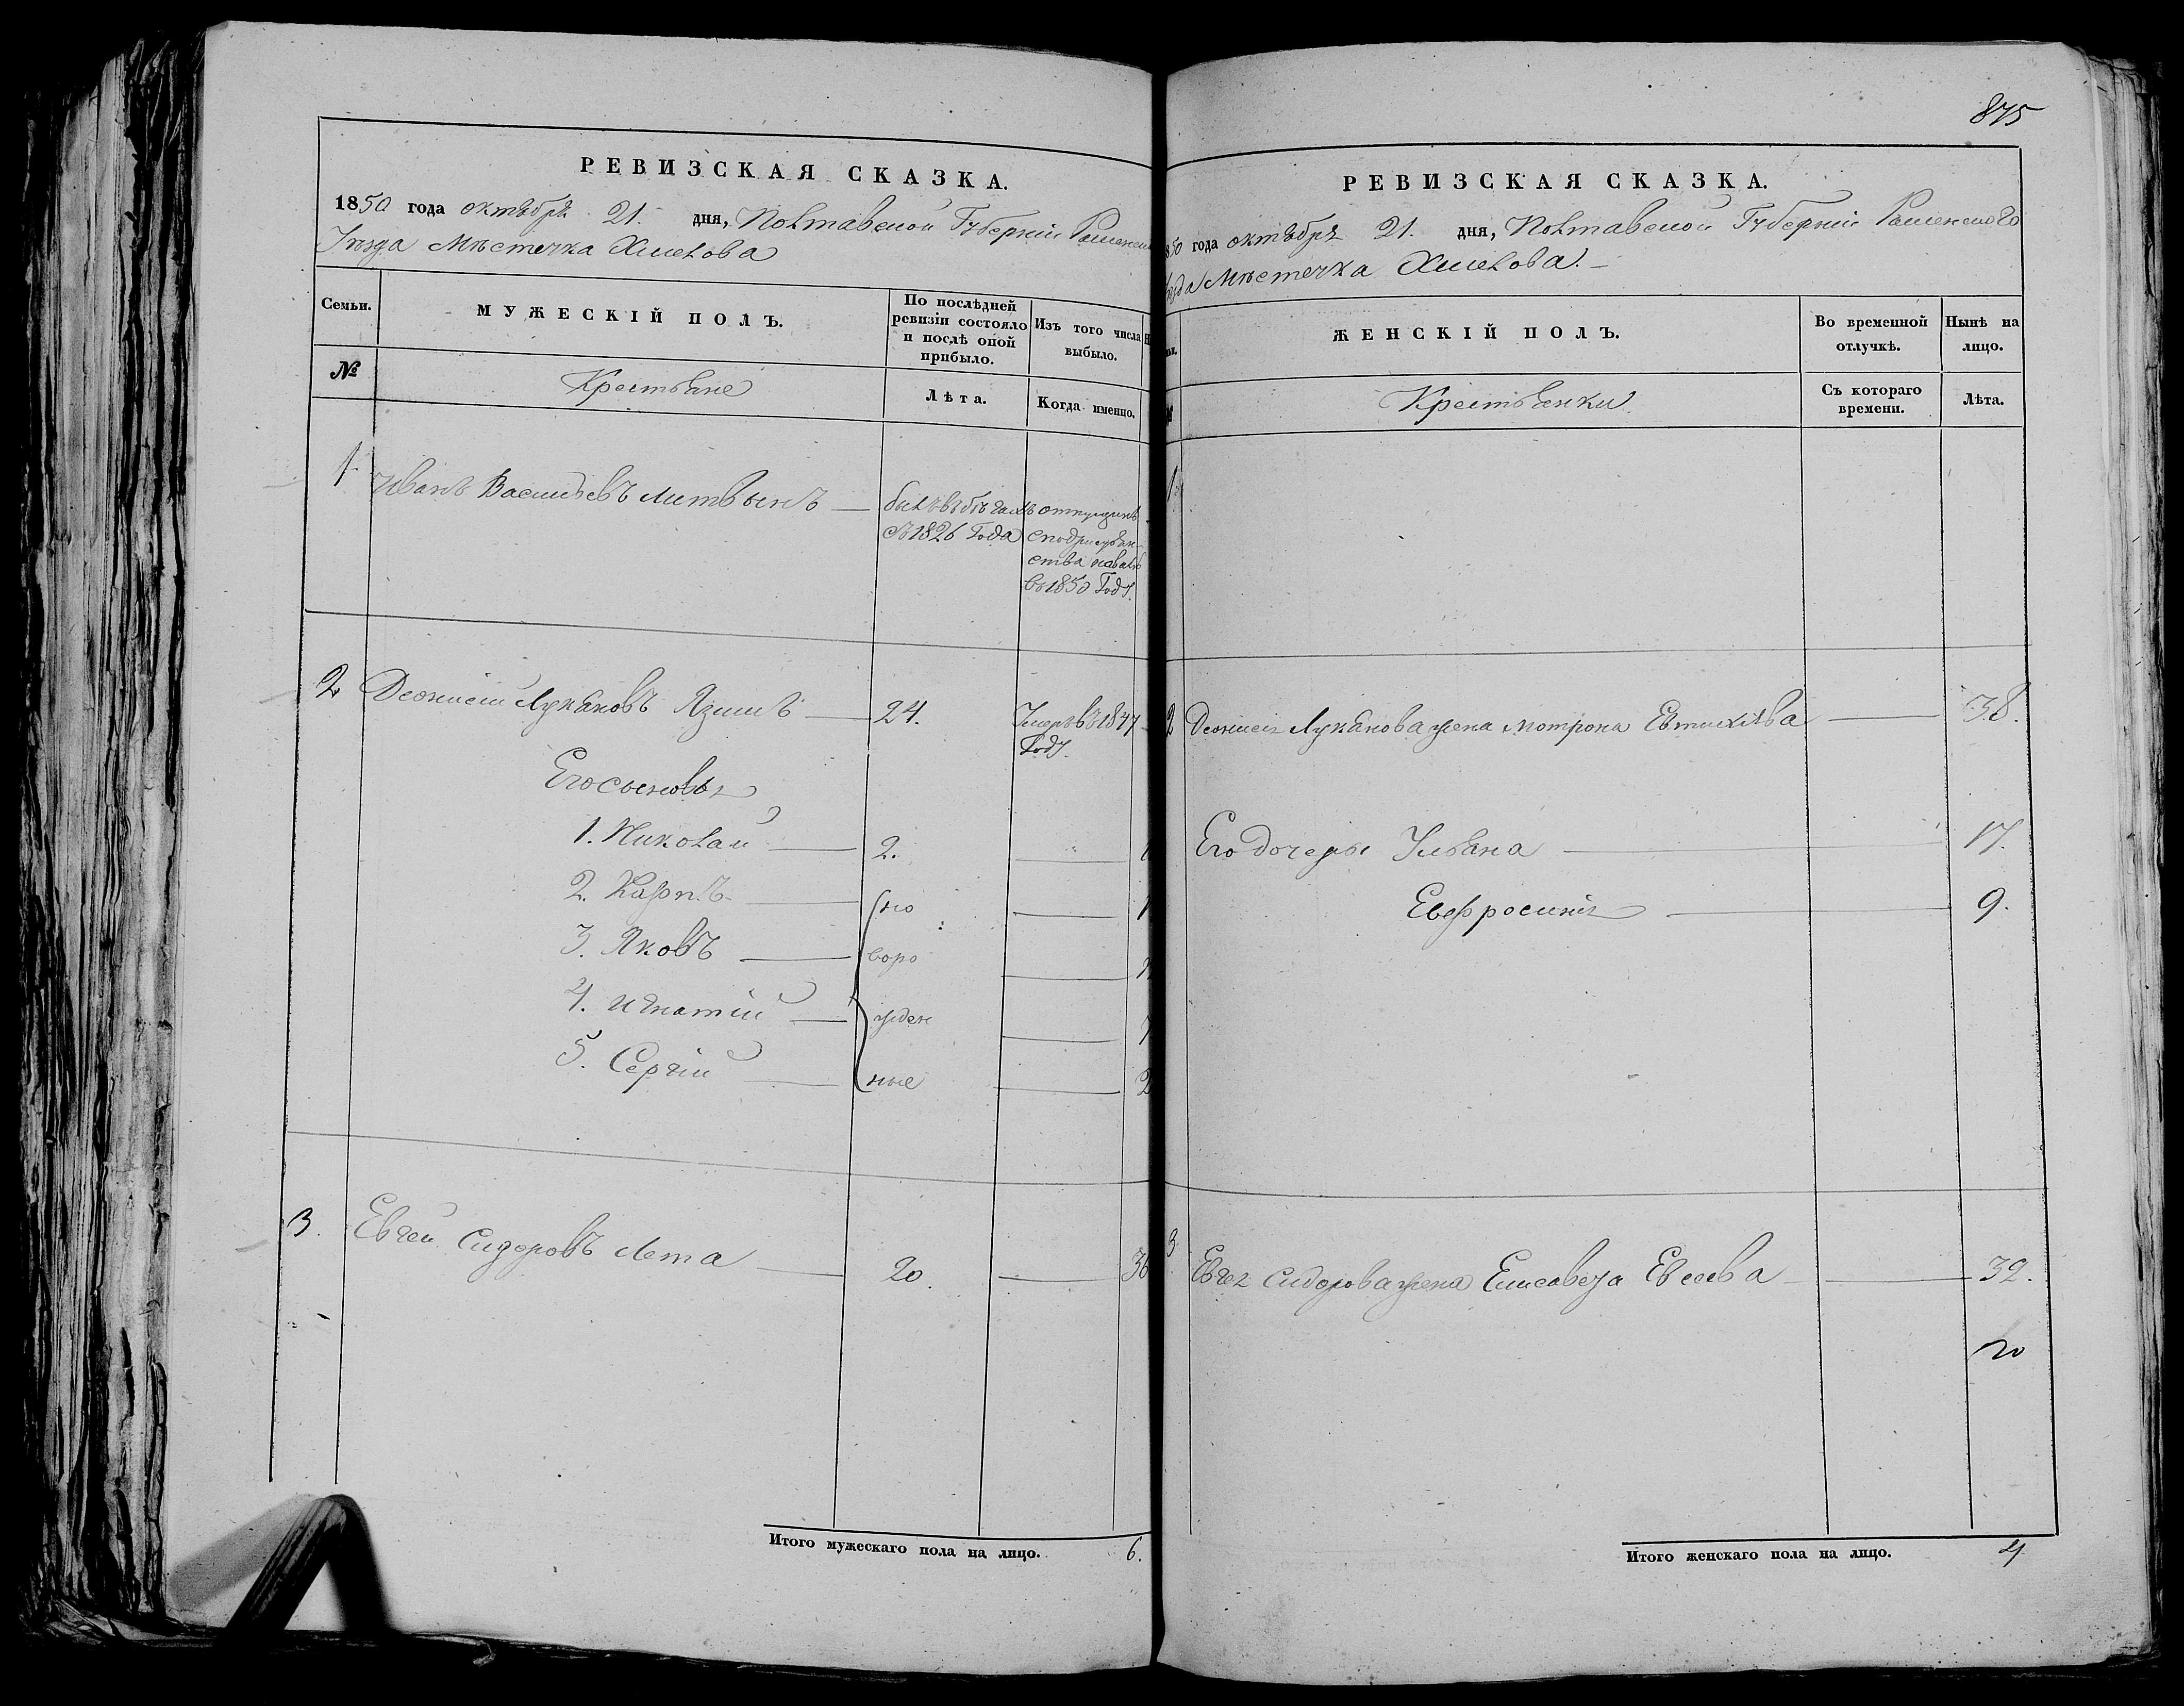 РЕВИЗСКАЯ СКАЗКА.
1850 года октября 21. дня, Полтавской Губерніи Роменск
Уезда Мѣстечка Хмелова
Семьи.
МУЖЕСКІЙ ПОЛЪ.
По послѣдней ревизіи состояло и послѣ оной прибыло.
Изъ того числа выбыло.
№
Крестьяне
Лѣта.
Когда именно.
1 Иванъ Васильевъ Литвынъ — былъ въ бѣгахъ
съ 1826 Года
въ 1850 Году.
2 Деонисій Лукьяновъ — 24. Умеръ въ 1847
Году.
Его сыновья
1. Николай — 2.
2. Карпъ — но
3. Яковъ — воро
4. Игнатій — жден
5. Сергій — ные
3. Евгей Сидоровъ Лета — 20. — 36
Итого мужескаго пола на лицо. 6.
875
РЕВИЗСКАЯ СКАЗКА.
50 года октября 21. дня, Полтавской Губерніи Роменскаго
езда Мѣстечка Хмелова. —
ЖЕНСКІЙ ПОЛЪ.
Во временной отлучкѣ.
Нынѣ на лицо.
Крестьянки
Съ котораго времени.
Лѣта.
1
2 Деонисія Лукьянова жена Мотрона — 38.
Его дочеры Ульяна — 17.
Евфросинія — 9.
3 Евгея Сидорова жена Елисавета Евсеева — 32.
Итого женскаго пола на лицо. 4